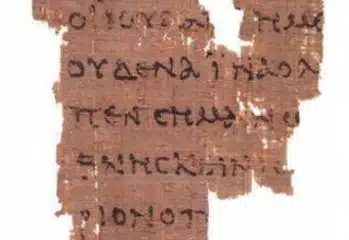 ΟΙ ΙΟΥΔΑΙ ΗΜΕ
ΟΥΔΕΝΑ ΙΝΑ Ο Λ
ΠΕΝ CΗΜΑΙΝΩ
ΘΝΗCΚΕΙΝ
ΡΙΟΝ Ο Π